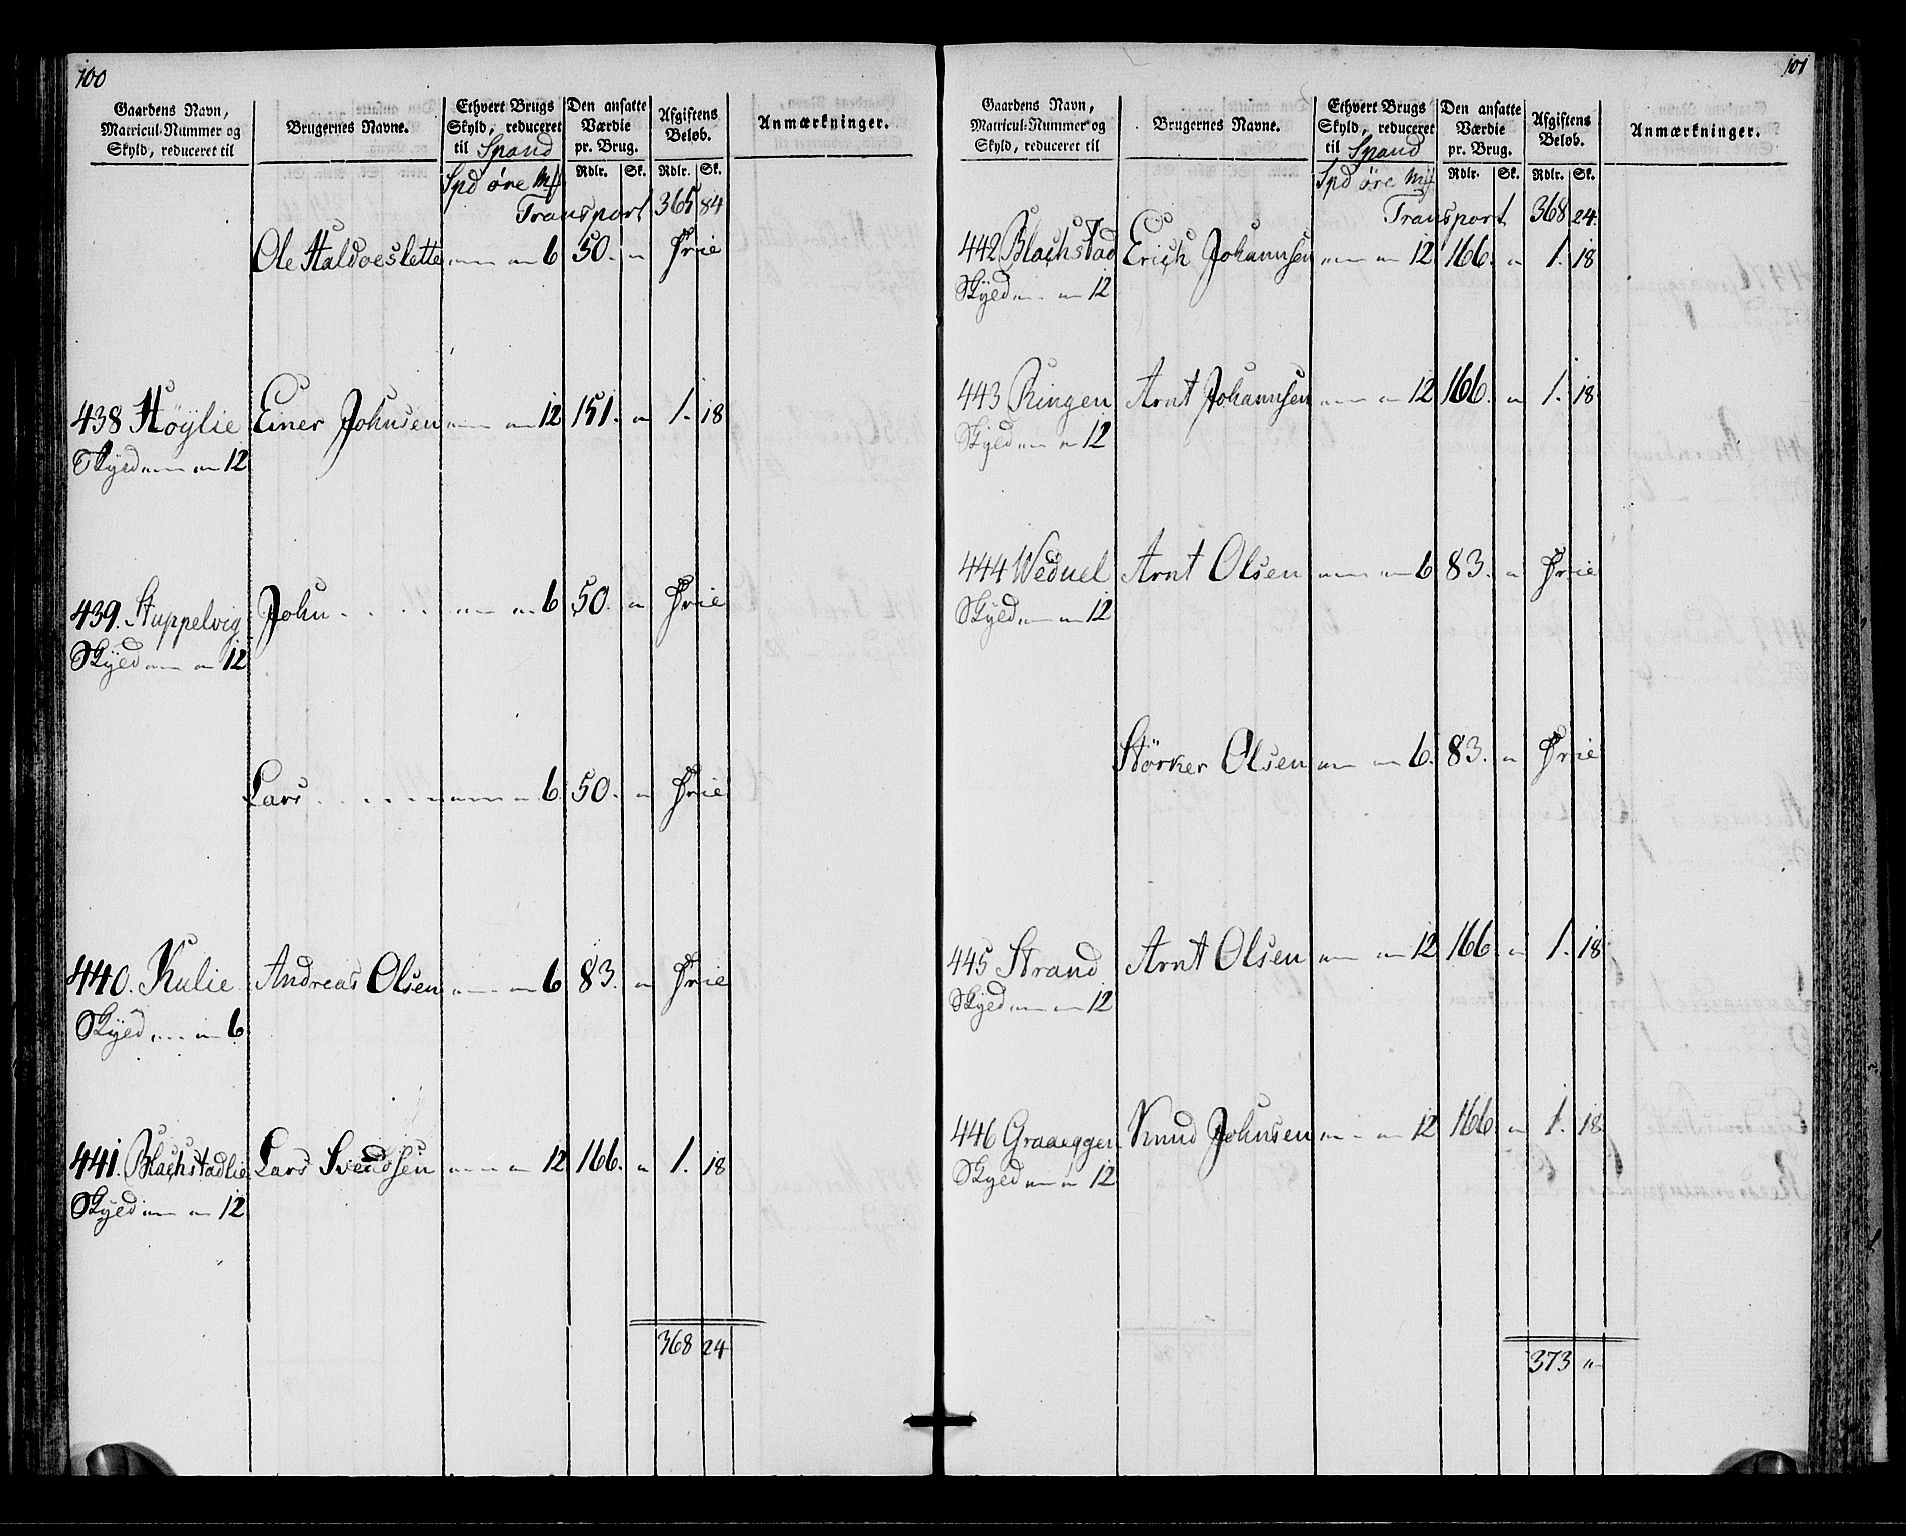 100
Gaardens Navn, Matricul-Nummer og Skyld, reduceret til | Brugernes Navne. | Ethvert Brugs Skyld, reduceret til Spand | Den ansatte Værdie pr. Brug. | Afgiftens Beløb. | Anmærkninger.
Spd øre Mk | Rdlr. | Sk. | Rdlr. | Sk.
Transport 365 84
Ole Haldoeslette „ „ 6 50. „ Frie
438 Höylie Einer Johnsen „ „ 12 151. „ 1. 18
Skyld „ „ 12
439. Stuppelvig John „ „ 6 50. „ Frie
Skyld „ „ 12
Lars „ „ 6 50. „ Frie
440. Kulie Andreas Olsen „ „ 6 83. „ Frie
Skyld „ „ 6
441. Blachstadlie Lars Svendsen „ „ 12 166. „ 1. 18
Skyld „ „ 12
368 24
101
Gaardens Navn, Matricul-Nummer og Skyld, reduceret til | Brugernes Navne. | Ethvert Brugs Skyld, reduceret til Spand | Den ansatte Værdie pr. Brug. | Afgiftens Beløb. | Anmærkninger.
Spd øre Mk | Rdlr. | Sk. | Rdlr. | Sk.
Transport 368 24
442 Blachstad Erich Johannsen „ „ 12 166. „ 1. 18
Skyld „ „ 12
443 Ringen Arnt Johannsen „ „ 12 166. „ 1. 18
Skyld „ „ 12
444 Weduel Arnt Olsen „ „ 6 83. „ Frie
Skyld „ „ 12
Störker Olsen „ „ 6. 83. „ Frie
445 Strand Arnt Olsen „ „ 12 166 „ 1. 18
Skyld „ „ 12
446 Graaeggen Knud Johnsen „ „ 12 166 „ 1. 18
Skyld „ „ 12
373 „